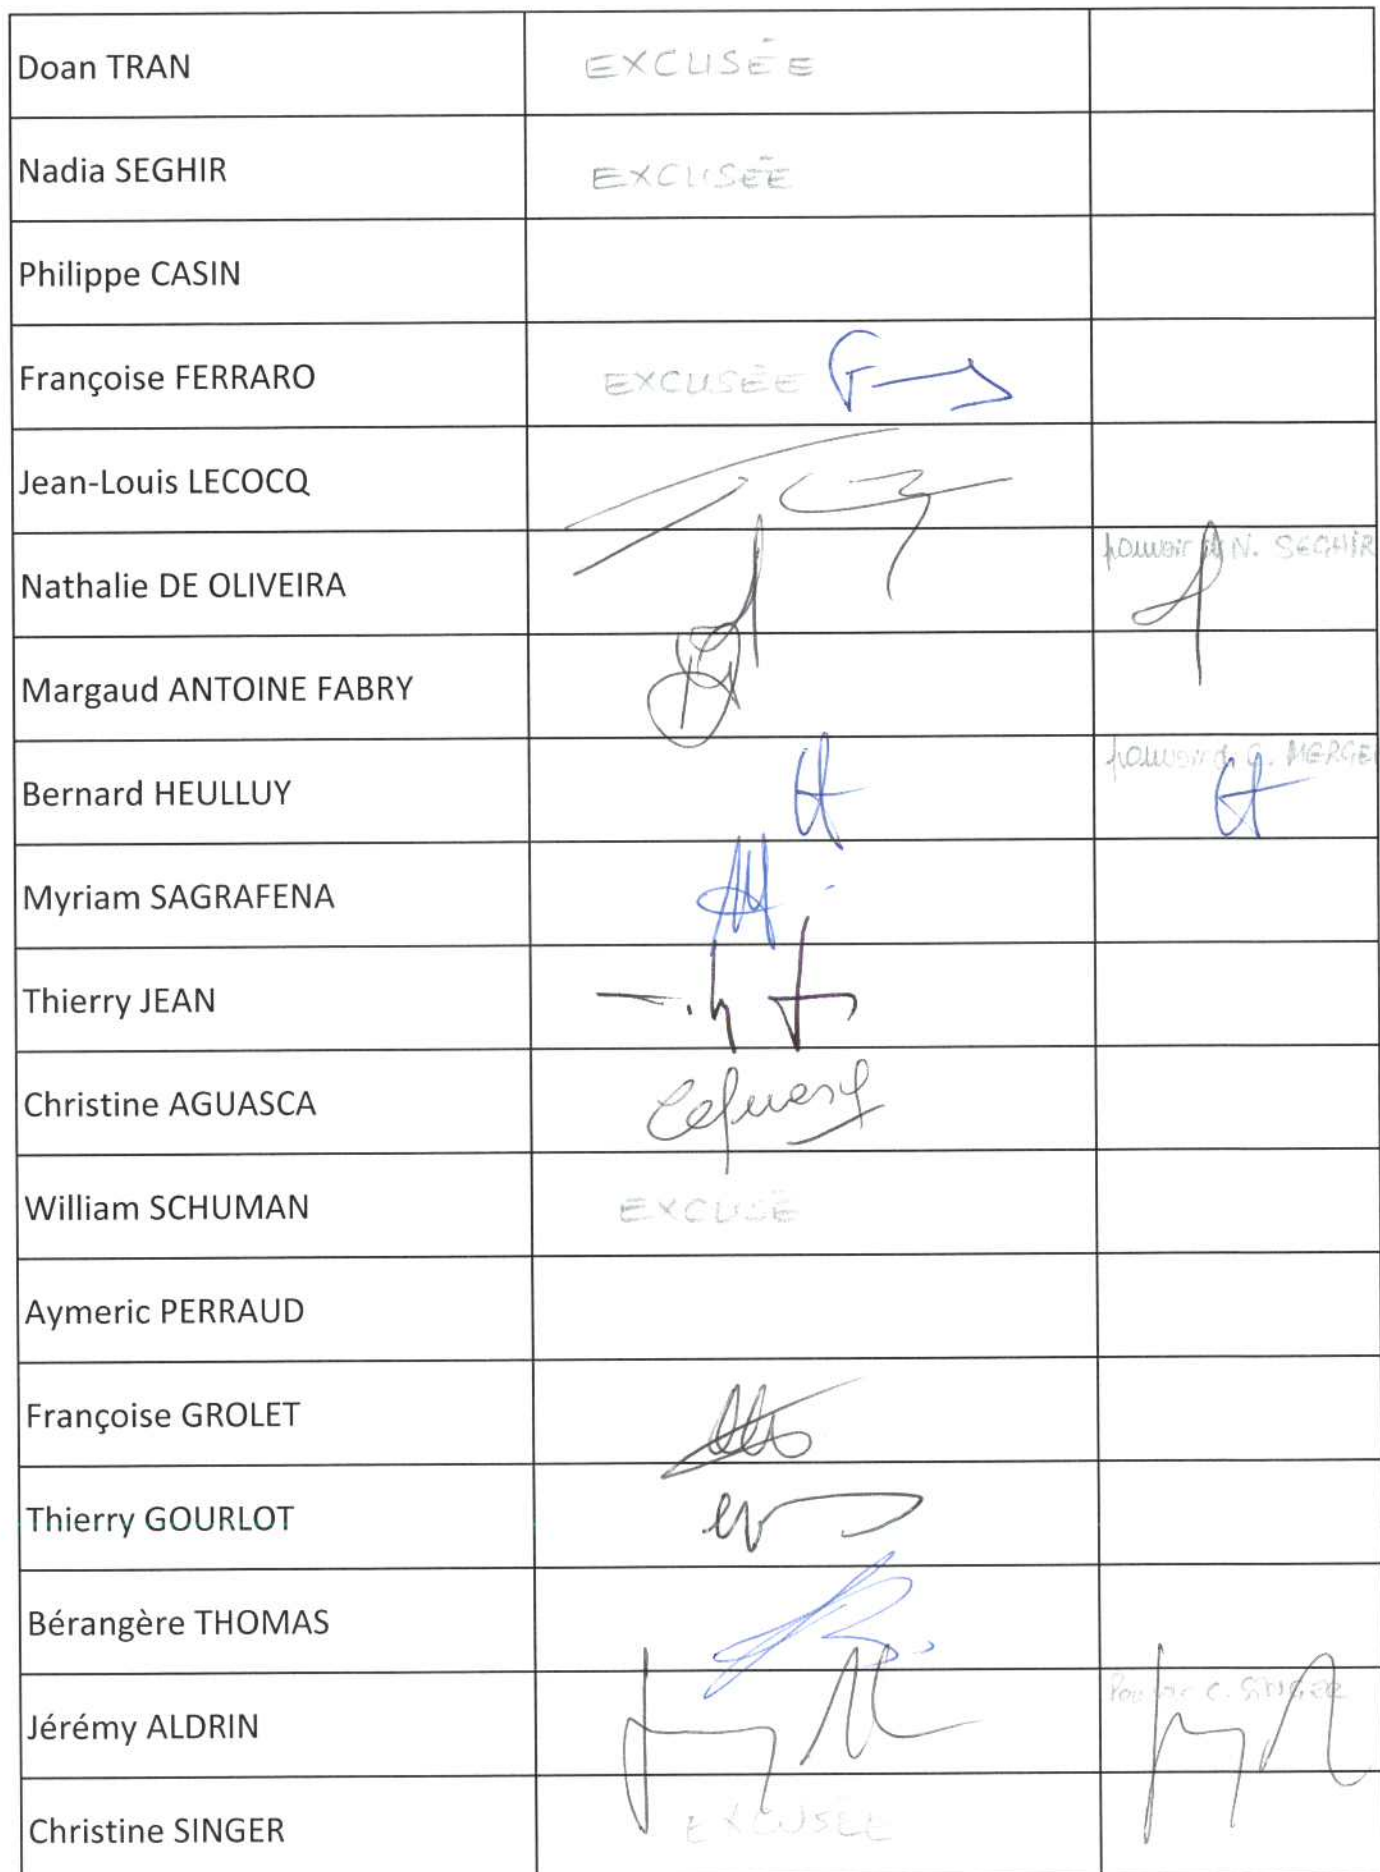 Doan TRAN EXCUSÉE
Nadia SEGHIR EXCUSÉE
Philippe CASIN
Françoise FERRARO EXCUSÉE
Jean-Louis LECOCQ
Nathalie DE OLIVEIRA pouvoir N. SEGHIR
Margaud ANTOINE FABRY
Bernard HEULLUY pouvoir G. MERGE
Myriam SAGRAFENA
Thierry JEAN
Christine AGUASCA
William SCHUMAN EXCUSÉ
Aymeric PERRAUD
Françoise GROLET
Thierry GOURLOT
Bérangère THOMAS
Jérémy ALDRIN Pouvoir C. SINGER
Christine SINGER EXCUSÉE